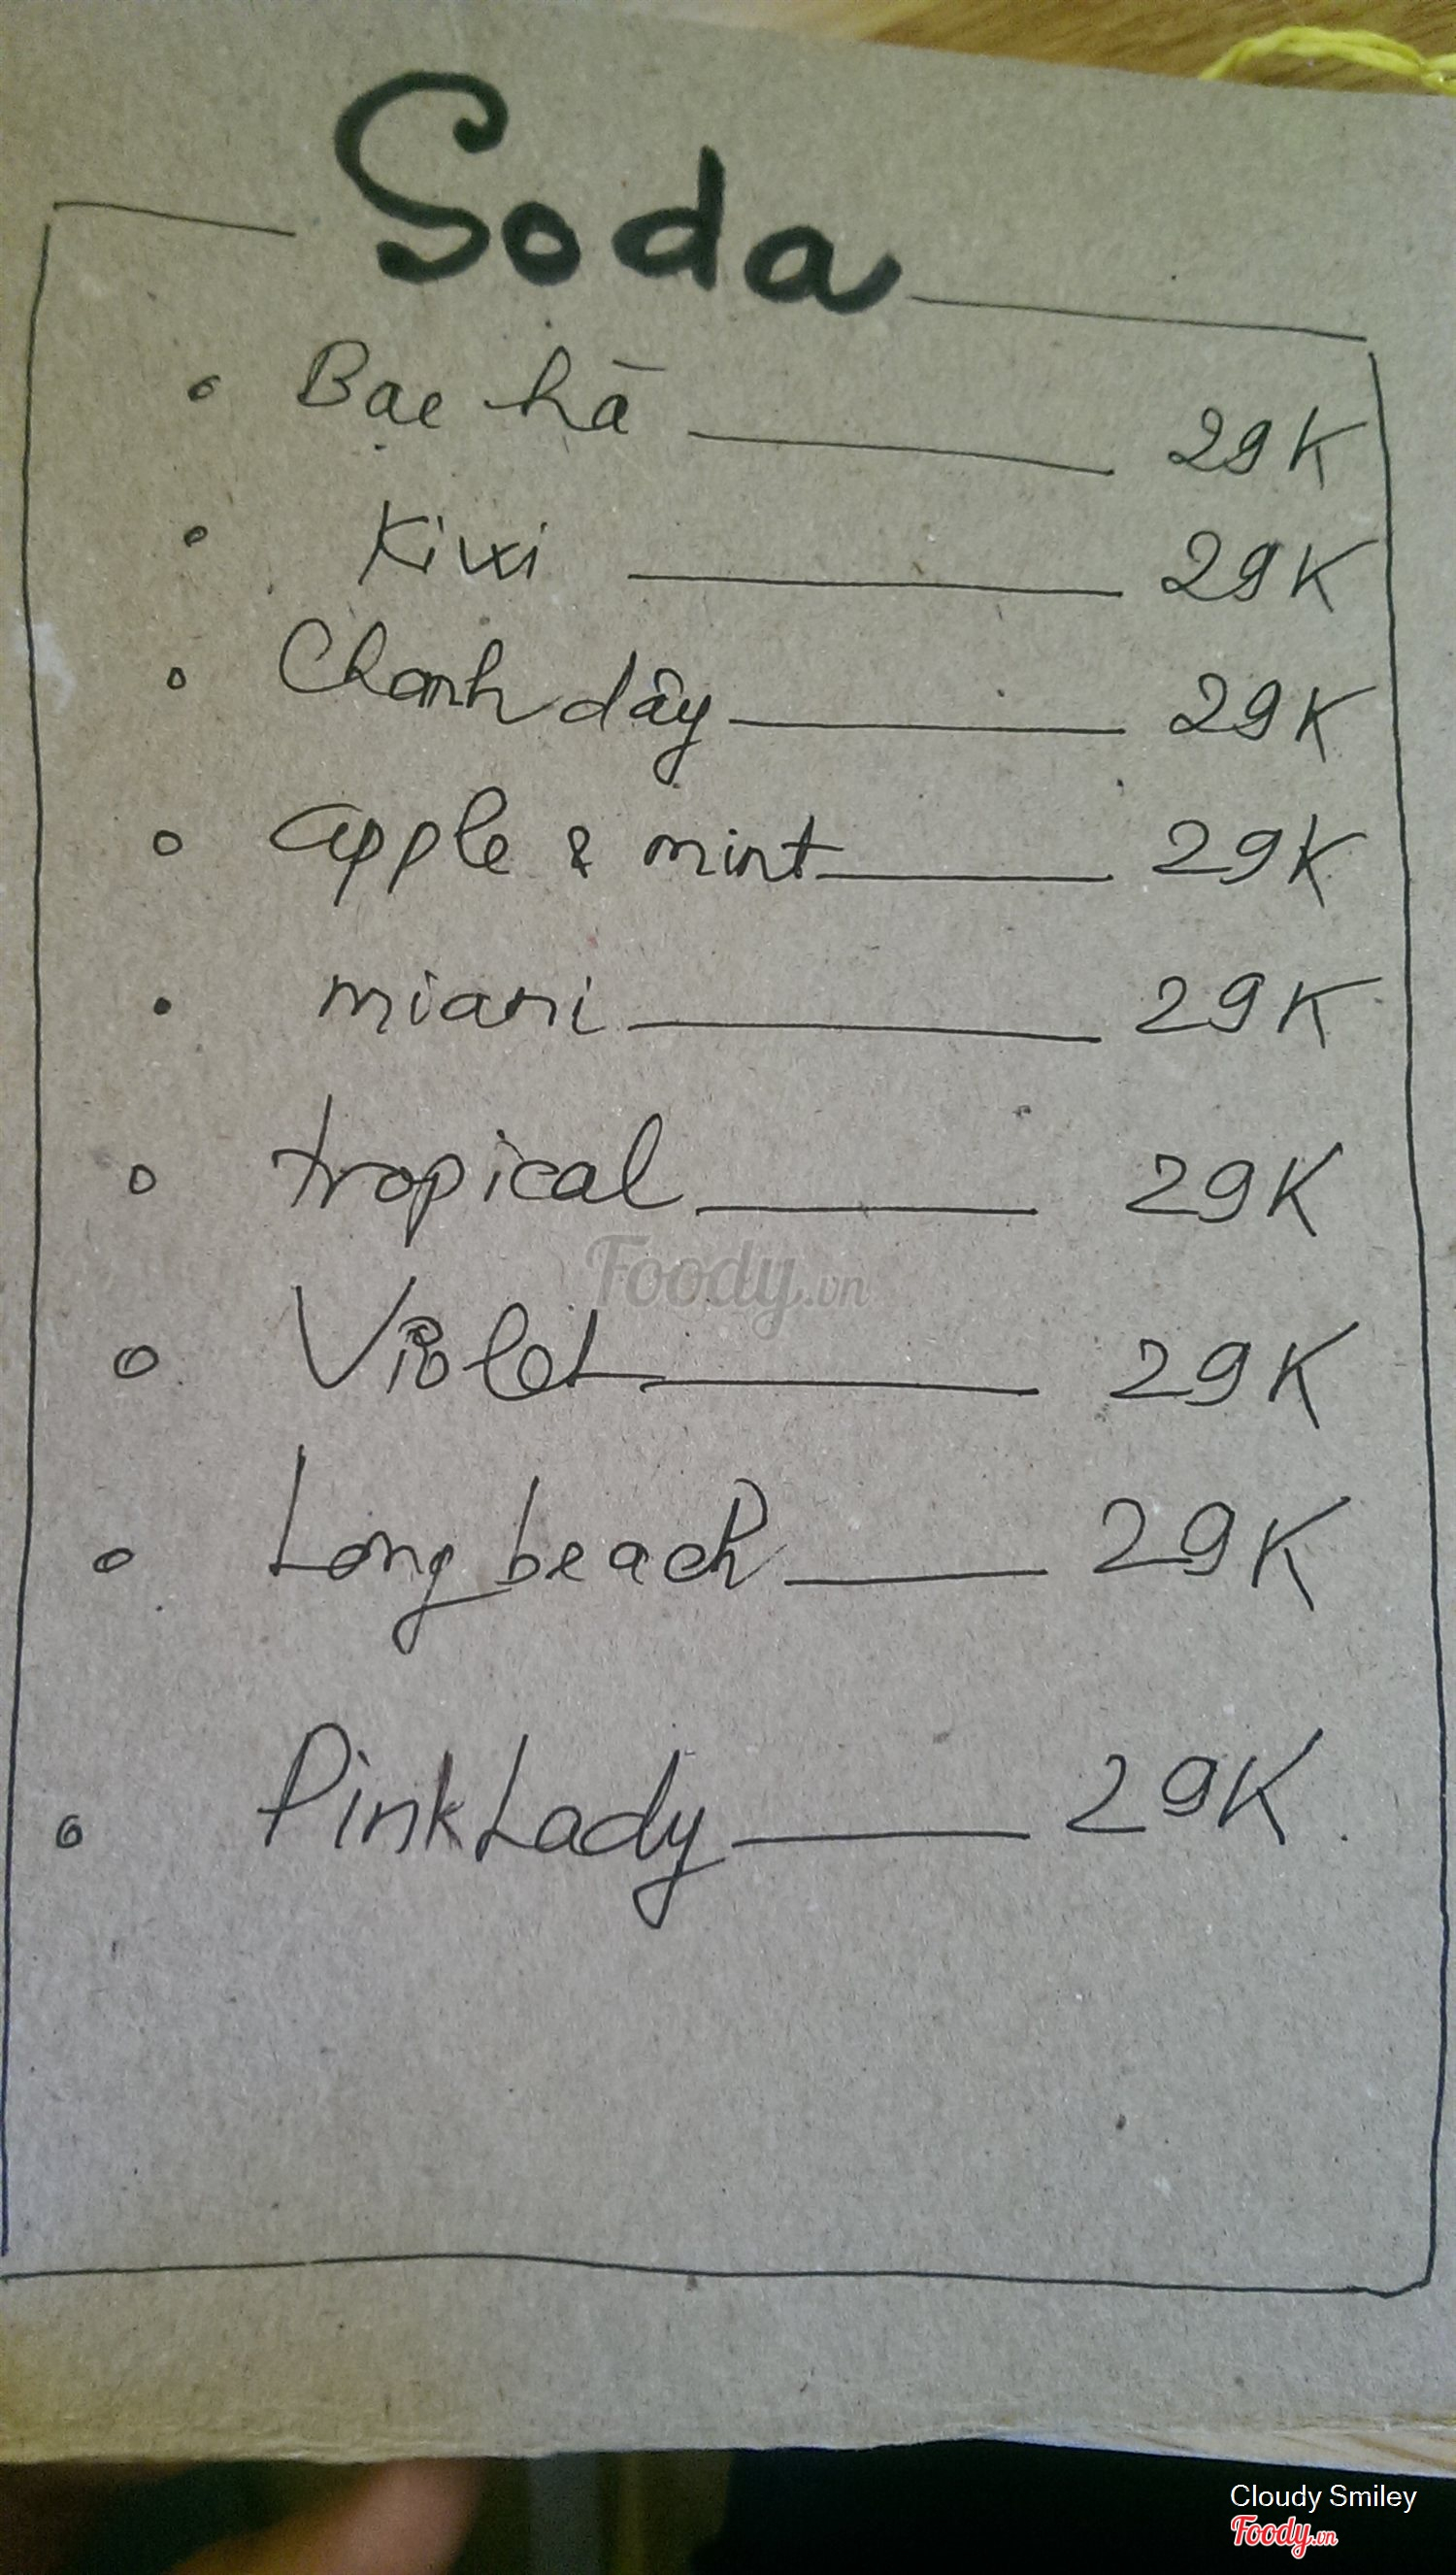 Soda
Bạc hà 29K
Kiwi 29K
Chanh dây 29K
apple & mint 29K
miami 29K
tropical 29K
Violet 29K
Long beach 29K
Pink Lady 29K.
Foody.vn
Cloudy Smiley
Foody.vn